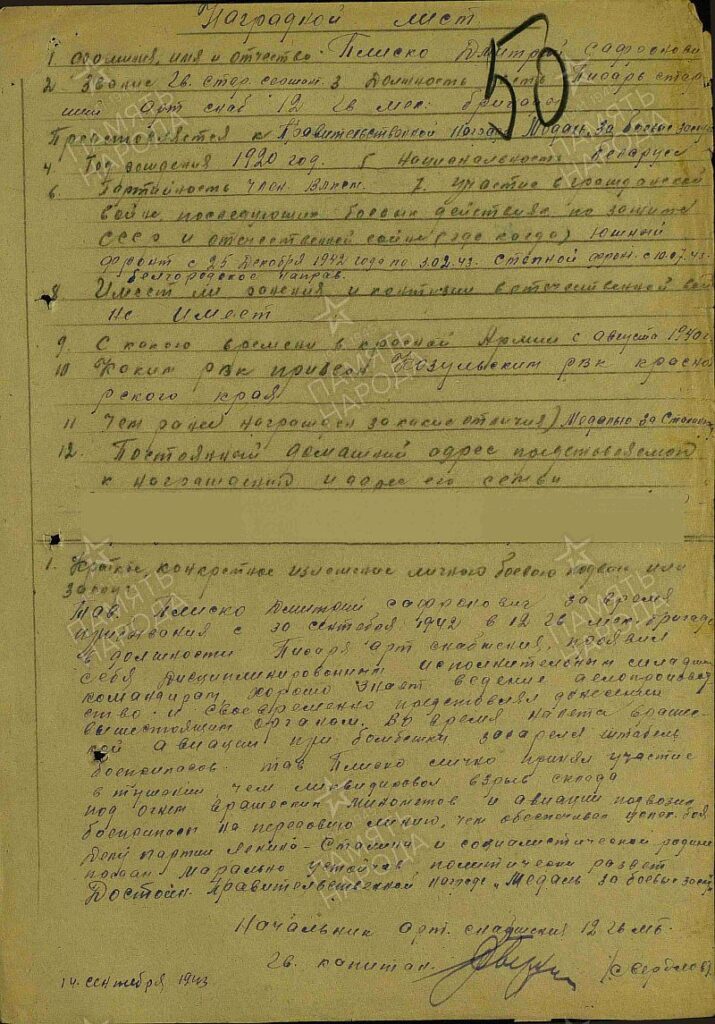 Наградной лист
50
1 Фамилия, имя и отчество. Плиско Дмитрий Сафронови
2 Звание Гв. стар. сержан. 3 Должность часть Писарь стар-
ший арт снаб 12 Гв мес. бригада
Представляется к Правительственной награде Медаль "За боевые заслу
4. Год рождения 1920 год. 5 Национальность беларуси
6. Партийность член. ВЛКСМ. 7. Участие в гражданской
войне, последующих боевых действиях по защите
СССР и отечественной войне (где когда) Южный
фронт с 25 декабря 1942 года по 3.02.43. Степной фрон. с 10.07.43.
белгородское направ.
8 Имеет ли ранения и контузии в отечественной вой
не имеет
9. С какого времени в красной Армии с августа 1940 г.
10 Каким РВК призван Козульским РВК красно
рского края
11 Чем ранее награжден за какие отличия) Медалью За Сталинг
12. Постоянный домашний адрес представляемого
к награждению и адрес его семьи
1. Краткое, конкретное изложение личного боевого подвига или
заслуг.
Тов. Плиско Дмитрий Сафронович за время
пребывания с 30 сентября 1942 в 12 гв мех. бригаде
в должности Писаря арт снабжения, проявил
себя дисциплинированным исполнительным младшим
командиром, хорошо знает ведение делопроизвод
ство и своевременно представлял донесения
вышестоящим органам. Во время налета враже-
ской авиации при бомбежки загорелся штабель
боеприпасов. тов Плиско лично принял участие
в тушении чем ликвидировал взрыв склада
под огнем вражеских минометов и авиации подвозил
боеприпасы на передовую линию, чем обеспечивал успех боя.
Делу партии Ленина-Сталина и социалистической родине
предан марально устойчив политически развит
Достоин Правительственной награде "Медаль за боевые заслу
Начальник арт. снабжения 12 гв мб.
Гв. капитан.
14 сентября 1943
ПАМЯТЬ НАРОДА
ПАМЯТЬ НАРОДА
ПАМЯТЬ НАРОДА
ПАМЯТЬ НАРОДА
ПАМЯТЬ НАРОДА
ПАМЯТЬ НАРОДА